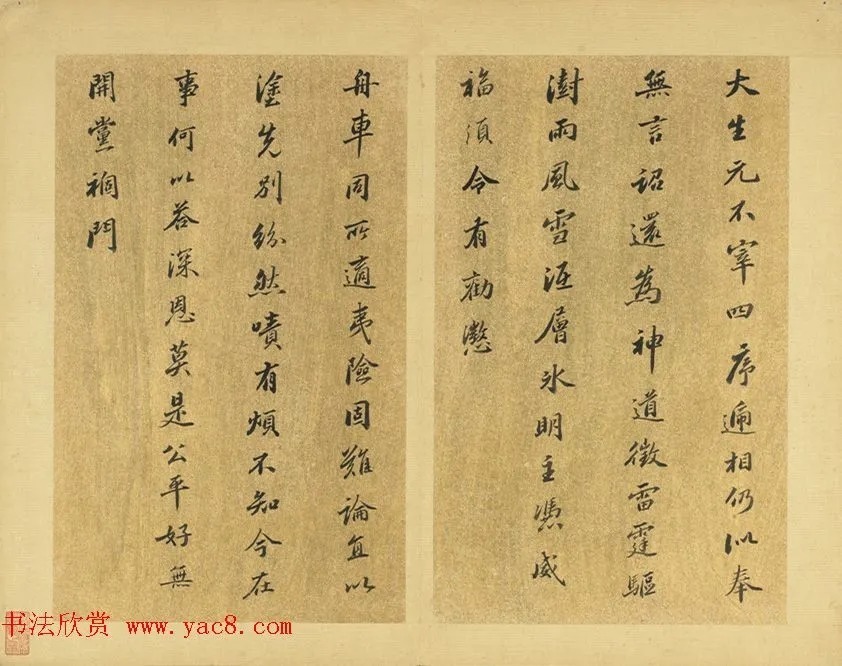 大生元不宰四序遞相仍似奉
無言詔還為神道徵雷霆驅
澍雨風雪沍層氷明主憑威
福須令有勸懲
舟車同所適夷險固難論直以
塗先別紛然嘖有煩不知今在
事何以荅深恩莫是公平好無
開黨禍門
书法欣赏 www.yac8.com